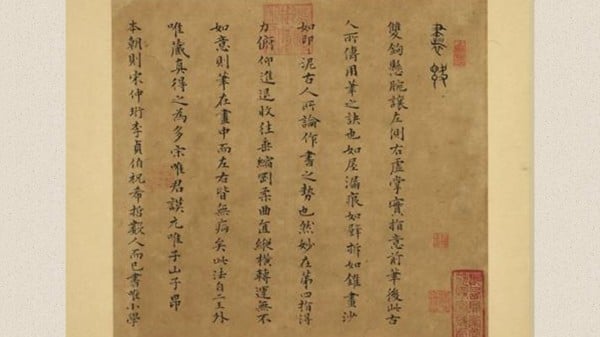 書訣
雙鉤懸腕讓左側右虛掌實指意前筆後此古
人所傳用筆之訣也如屋漏痕如壁拆如錐畫沙
如印泥古人所論作書之勢也然妙在第四指得
力俯仰進退收往垂縮剛柔曲直縱橫轉運無不
如意則筆在畫中而左右皆無病矣此法自二王外
唯藏真得之為多宋唯君謨元唯子山子昂
本朝則宋仲珩李貞伯祝希哲數人而已書唯小學